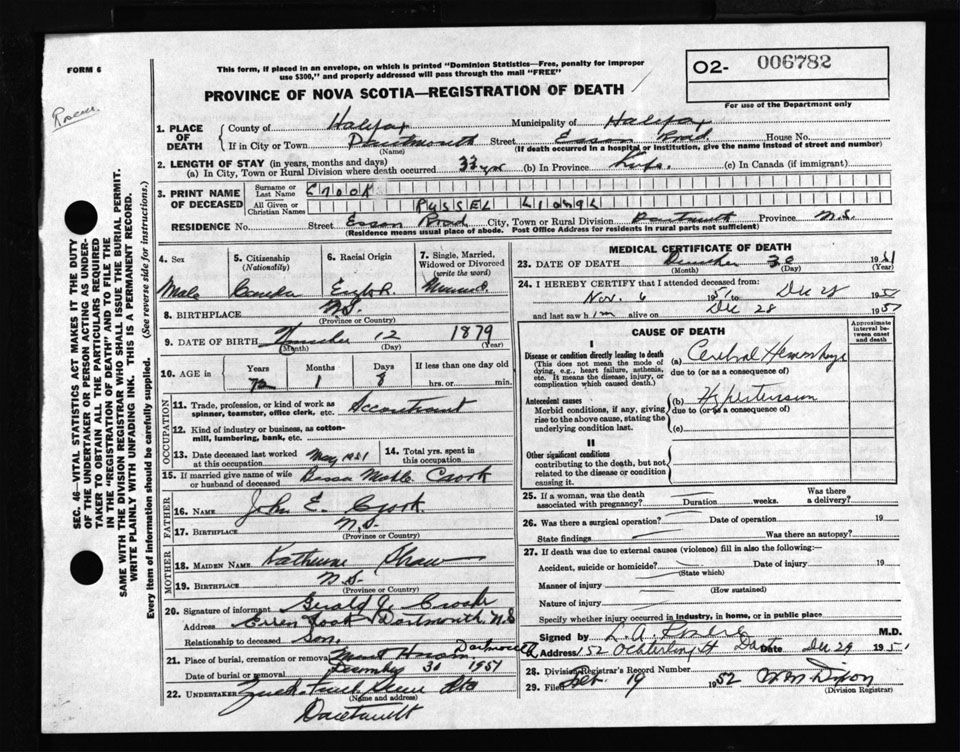 FORM 6
This form, if placed in an envelope, on which is printed "Dominion Statistics—Free, penalty for improper
use $300," and properly addressed will pass through the mail "FREE"
O2- 006782
For use of the Department only
PROVINCE OF NOVA SCOTIA—REGISTRATION OF DEATH
1. PLACE OF DEATH
County of Halifax Municipality of Halifax
If in City or Town Dartmouth Street Road House No.
(Name) (If death occurred in a hospital or institution, give the name instead of street and number)
2. LENGTH OF STAY (in years, months and days)
(a) In City, Town or Rural Division where death occurred 33 yrs (b) In Province Life (c) In Canada (if immigrant)
3. PRINT NAME OF DECEASED
Surname or Last Name CROOK
All Given or Christian Names RUSSEL
RESIDENCE No. Street Road City, Town or Rural Division Dartmouth Province N.S.
(Residence means usual place of abode. Post Office Address for residents in rural parts not sufficient)
4. Sex Male
5. Citizenship (Nationality)
6. Racial Origin English
7. Single, Married, Widowed or Divorced (write the word)
8. BIRTHPLACE N.S.
(Province or Country)
9. DATE OF BIRTH 12 1879
(Month) (Day) (Year)
10. AGE in Years Months Days If less than one day old
72 1 8 hrs. or min.
OCCUPATION
11. Trade, profession or kind of work as spinner, teamster, office clerk, etc. Accountant
12. Kind of industry or business, as cotton-mill, lumbering, bank, etc.
13. Date deceased last worked at this occupation May 1951
14. Total yrs. spent in this occupation
15. If married give name of wife or husband of deceased Mable Crook
FATHER
16. NAME John E. Crook
17. BIRTHPLACE N.S.
(Province or Country)
MOTHER
18. MAIDEN NAME Katherine Shaw
19. BIRTHPLACE N.S.
(Province or Country)
20. Signature of informant Gerald J. Crook
Address Dartmouth N.S
Relationship to deceased Son
21. Place of burial, cremation or removal Mount Dartmouth
Date of burial or removal December 30 1951
22. UNDERTAKER
(Name and address)
Dartmouth
MEDICAL CERTIFICATE OF DEATH
23. DATE OF DEATH December 1951
(Month) (Day) (Year)
24. I HEREBY CERTIFY that I attended deceased from:
Nov. 6 1951 to Dec 28 1951
and last saw him alive on Dec 28 1951
CAUSE OF DEATH
Approximate interval between onset and death
I
Disease or condition directly leading to death
(This does not mean the mode of dying, e.g., heart failure, asthenia, etc. It means the disease, injury, or complication which caused death.)
(a) Cerebral Hemorrhage
due to (or as a consequence of)
Antecedent causes
Morbid conditions, if any, giving rise to the above cause, stating the underlying condition last.
(b) Hypertension
due to (or as a consequence of)
(c)
II
Other significant conditions
contributing to the death, but not related to the disease or condition causing it.
25. If a woman, was the death associated with pregnancy? Duration weeks. Was there a delivery?
26. Was there a surgical operation? Date of operation 19
State findings Was there an autopsy?
27. If death was due to external causes (violence) fill in also the following:—
Accident, suicide or homicide? Date of injury 19
(State which)
Manner of injury
(How sustained)
Nature of injury
Specify whether injury occurred in industry, in home, or in public place
Signed by L. A. M.D.
Address 152 Ochterloney St Date Dec 29 1951
28. Division Registrar's Record Number
29. Filed 19 1952
(Division Registrar)
SEC. 46—VITAL STATISTICS ACT MAKES IT THE DUTY
OF THE UNDERTAKER OR PERSON ACTING AS UNDERTAKER
TO OBTAIN ALL THE PARTICULARS REQUIRED
IN THE "REGISTRATION OF DEATH" AND TO FILE THE
SAME WITH THE DIVISION REGISTRAR WHO SHALL ISSUE THE BURIAL PERMIT.
WRITE PLAINLY WITH UNFADING INK. THIS IS A PERMANENT RECORD.
Every item of information should be carefully supplied. (See reverse side for instructions.)